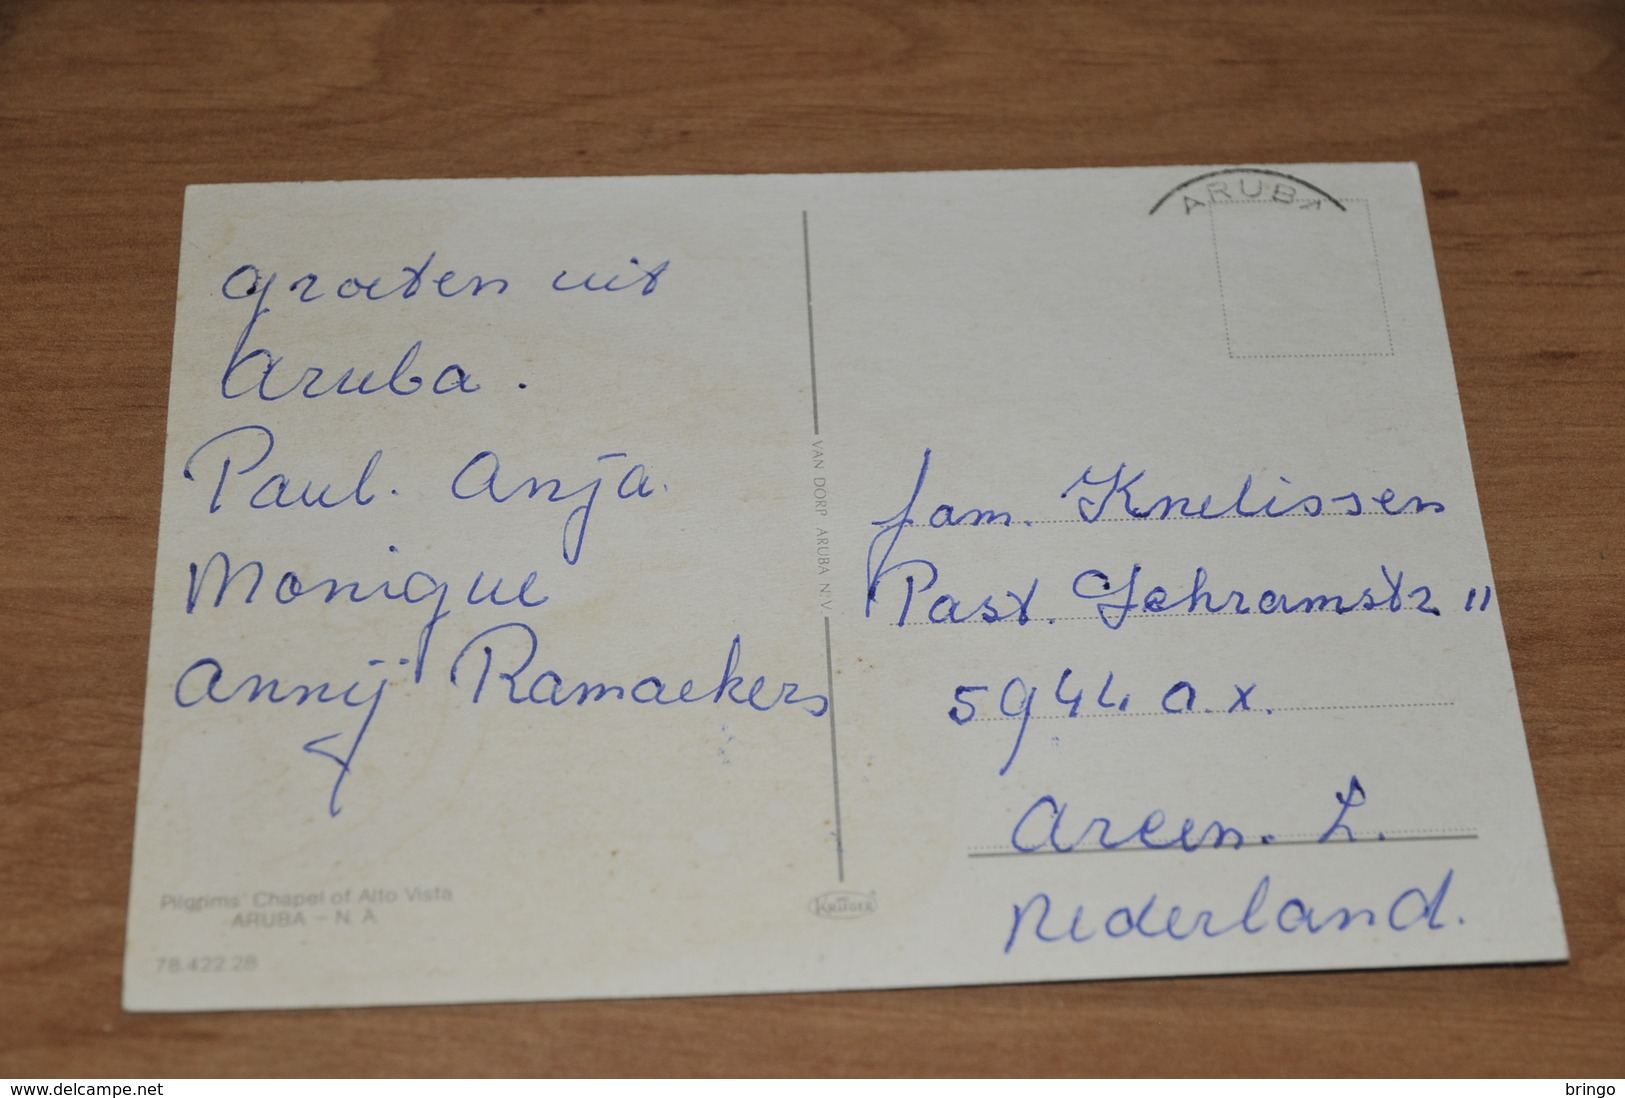 ARUBA
groeten uit
Aruba.
Paul. Anja.
Monique
Annij Ramaekers
fam. Knelissen
Past. Schramstr 11
5944 a.x.
Arcen. L.
Nederland.
VAN DORP ARUBA N.V.
Pilgrims' Chapel of Alto Vista
ARUBA - N. A.
78.422.28
KRÜGER
delcampe.net
bringo